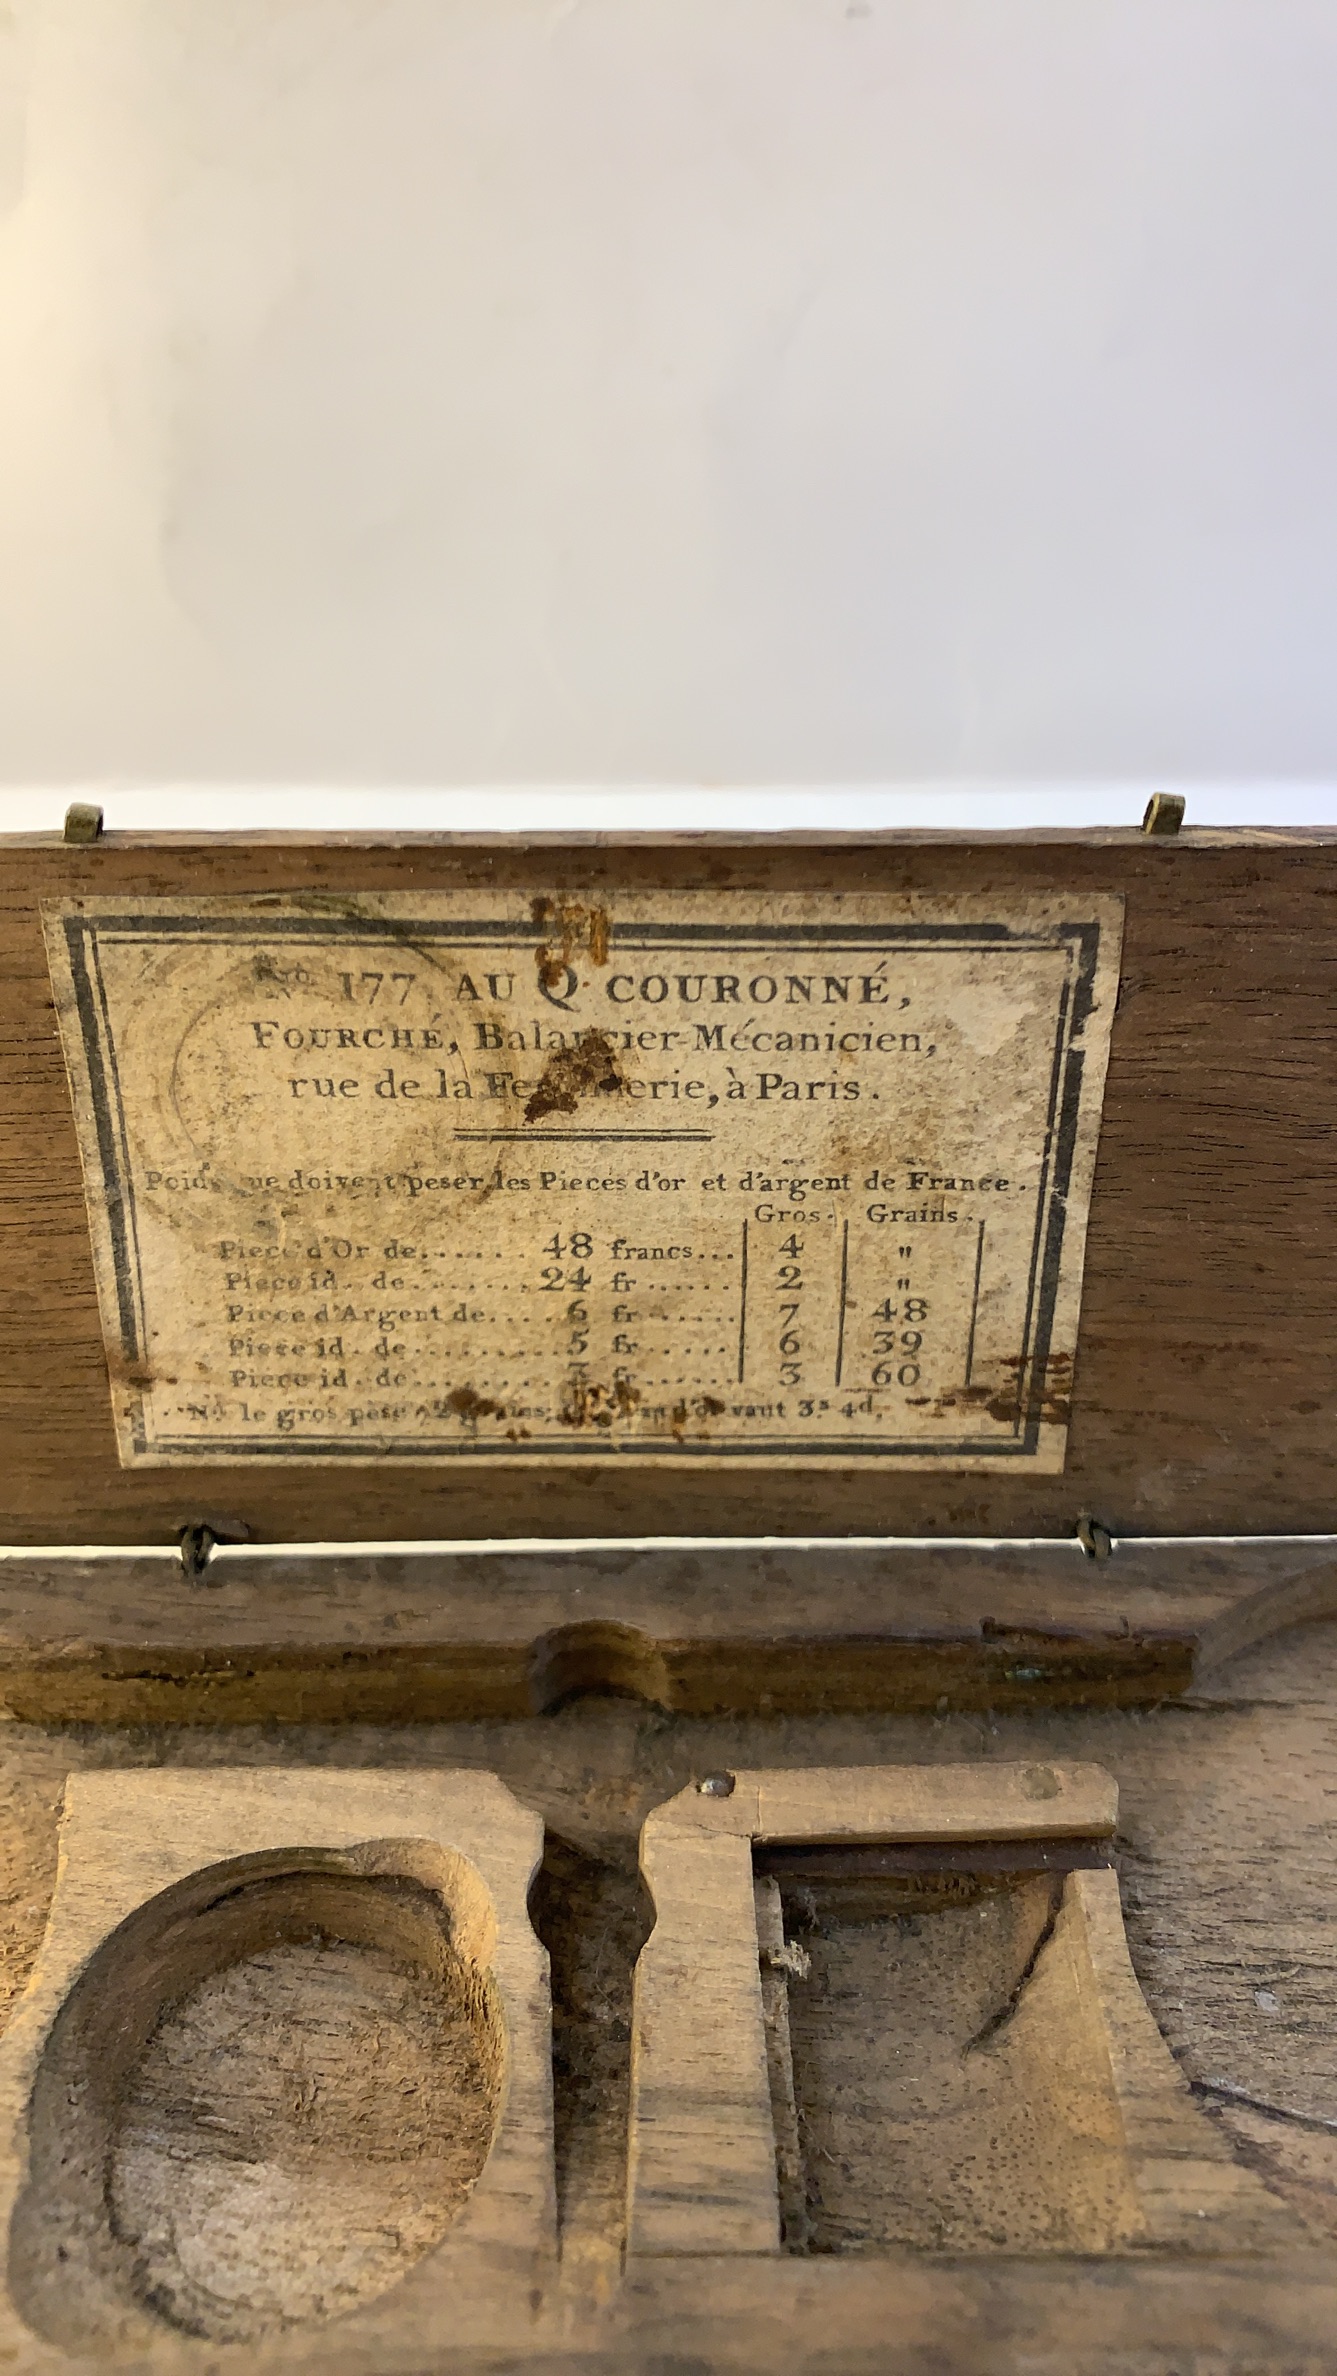 No. 177 AU Q COURONNÉ,
FOURCHÉ, Balancier-Mécanicien,
rue de la à Paris.
Poids que doivent peser les Pieces d'or et d'argent de France.
Gros. Grains.
Piece d'Or de...... 48 francs... 4 "
Piece id. de........ 24 fr...... 2 "
Piece d'Argent de.... 6 fr...... 7 48
Piece id. de......... 5 fr...... 6 39
Piece id. de......... 3 fr...... 3 60
le gros pese 72 grains; d'or vaut 3.s 4d.